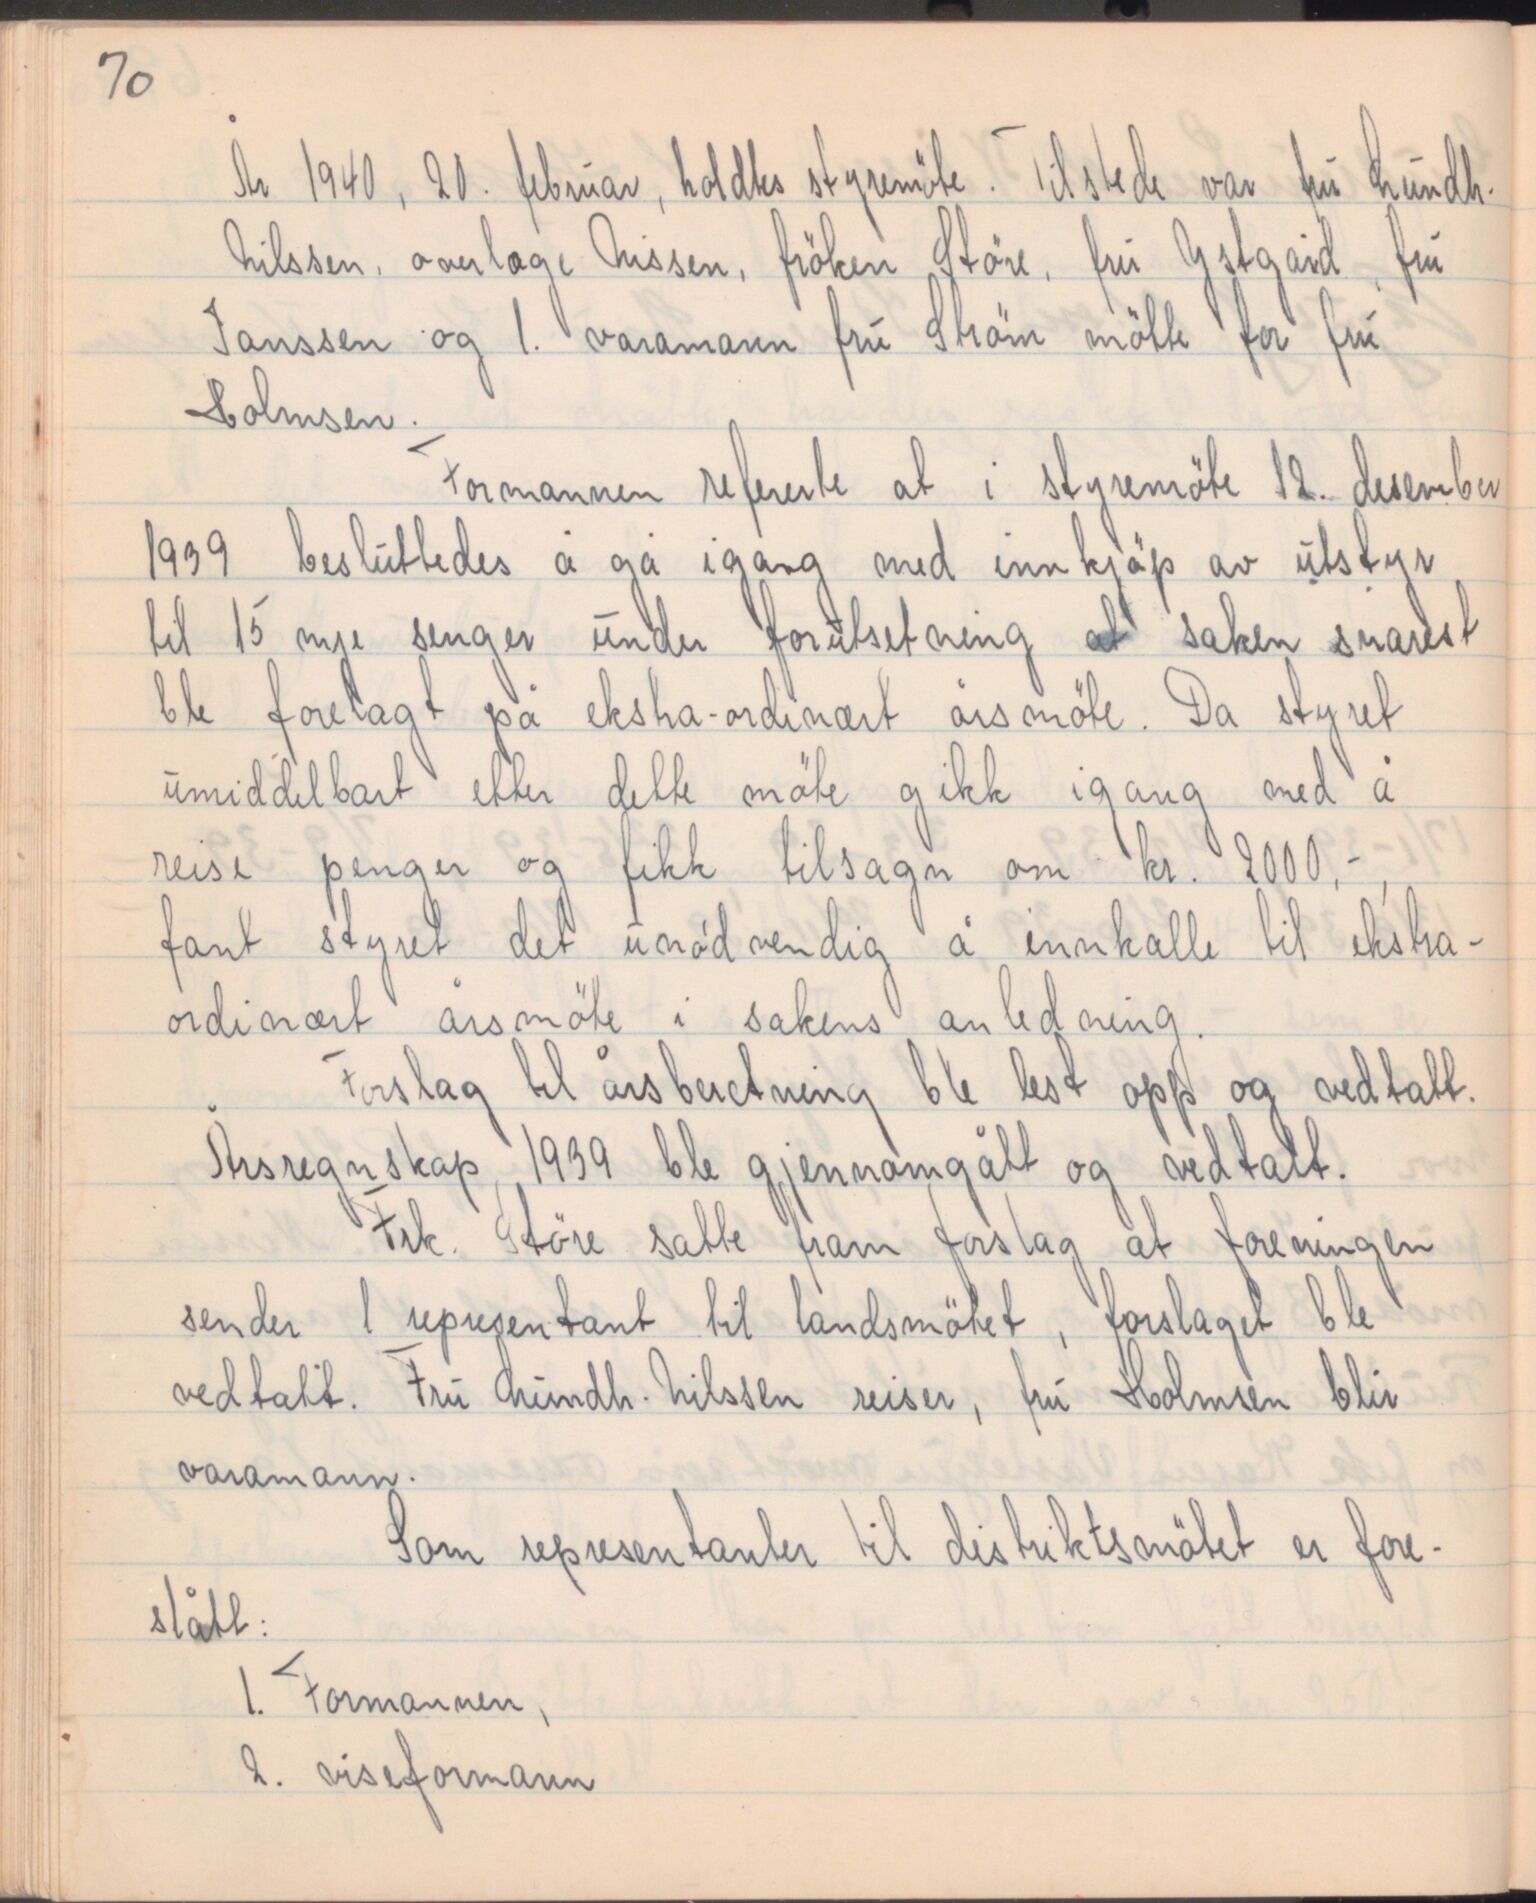 70
År 1940, 20. februar, holdtes styremöte. Tilstede var fru Lundh.
Nilssen, overlæge Nissen, fröken Störe, fru Ystgård, fru
Janssen og 1. varamann fru Ström mötte for fru
Holmsen.
Formannen refererte at i styremöte 12. desember
1939 besluttedes å gå igang med innkjöp av utstyr
til 15 nye senger under forutsetning at saken snarest
ble forelagt på ekstra-ordinært årsmöte. Da styret
umiddelbart etter dette möte gikk igang med å
reise penger og fikk tilsagn om kr. 2000,-,
fant styret det unödvendig å innkalle til ekstra-
ordinært årsmöte i sakens anledning.
Forslag til årsberetning ble lest opp og vedtatt.
Årsregnskap 1939 ble gjennomgått og vedtatt.
Frk. Störe satte fram forslag at foreningen
sender 1 representant til landsmötet, forslaget ble
vedtatt. Fru Lundh. Nilssen reiser, fru Holmsen blir
varamann.
Som representanter til distriktsmötet er fore-
slått:
1. Formannen,
2. viseformann